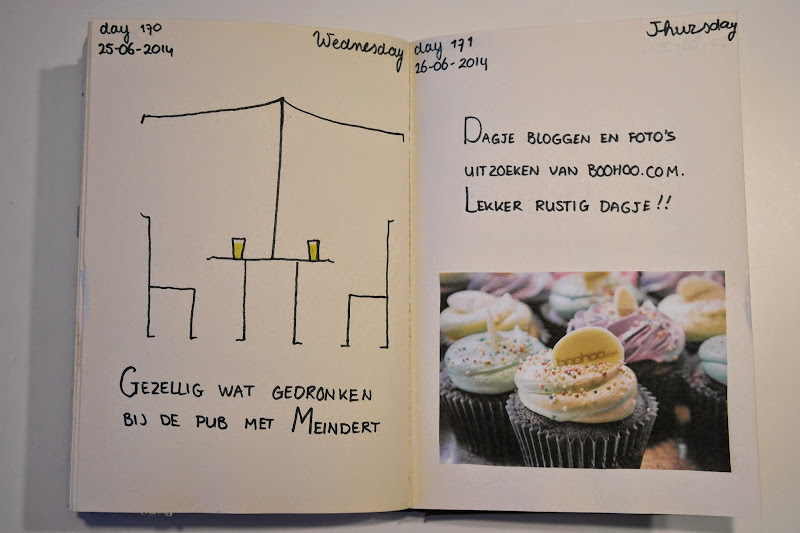 day 170
25-06-2014
Wednesday
GEZELLIG WAT GEDRONKEN
BIJ DE PUB MET MEINDERT
day 171
26-06-2014
Thursday
DAGJE BLOGGEN EN FOTO'S
UITZOEKEN VAN BOOHOO.COM.
LEKKER RUSTIG DAGJE!!
boohoo.com